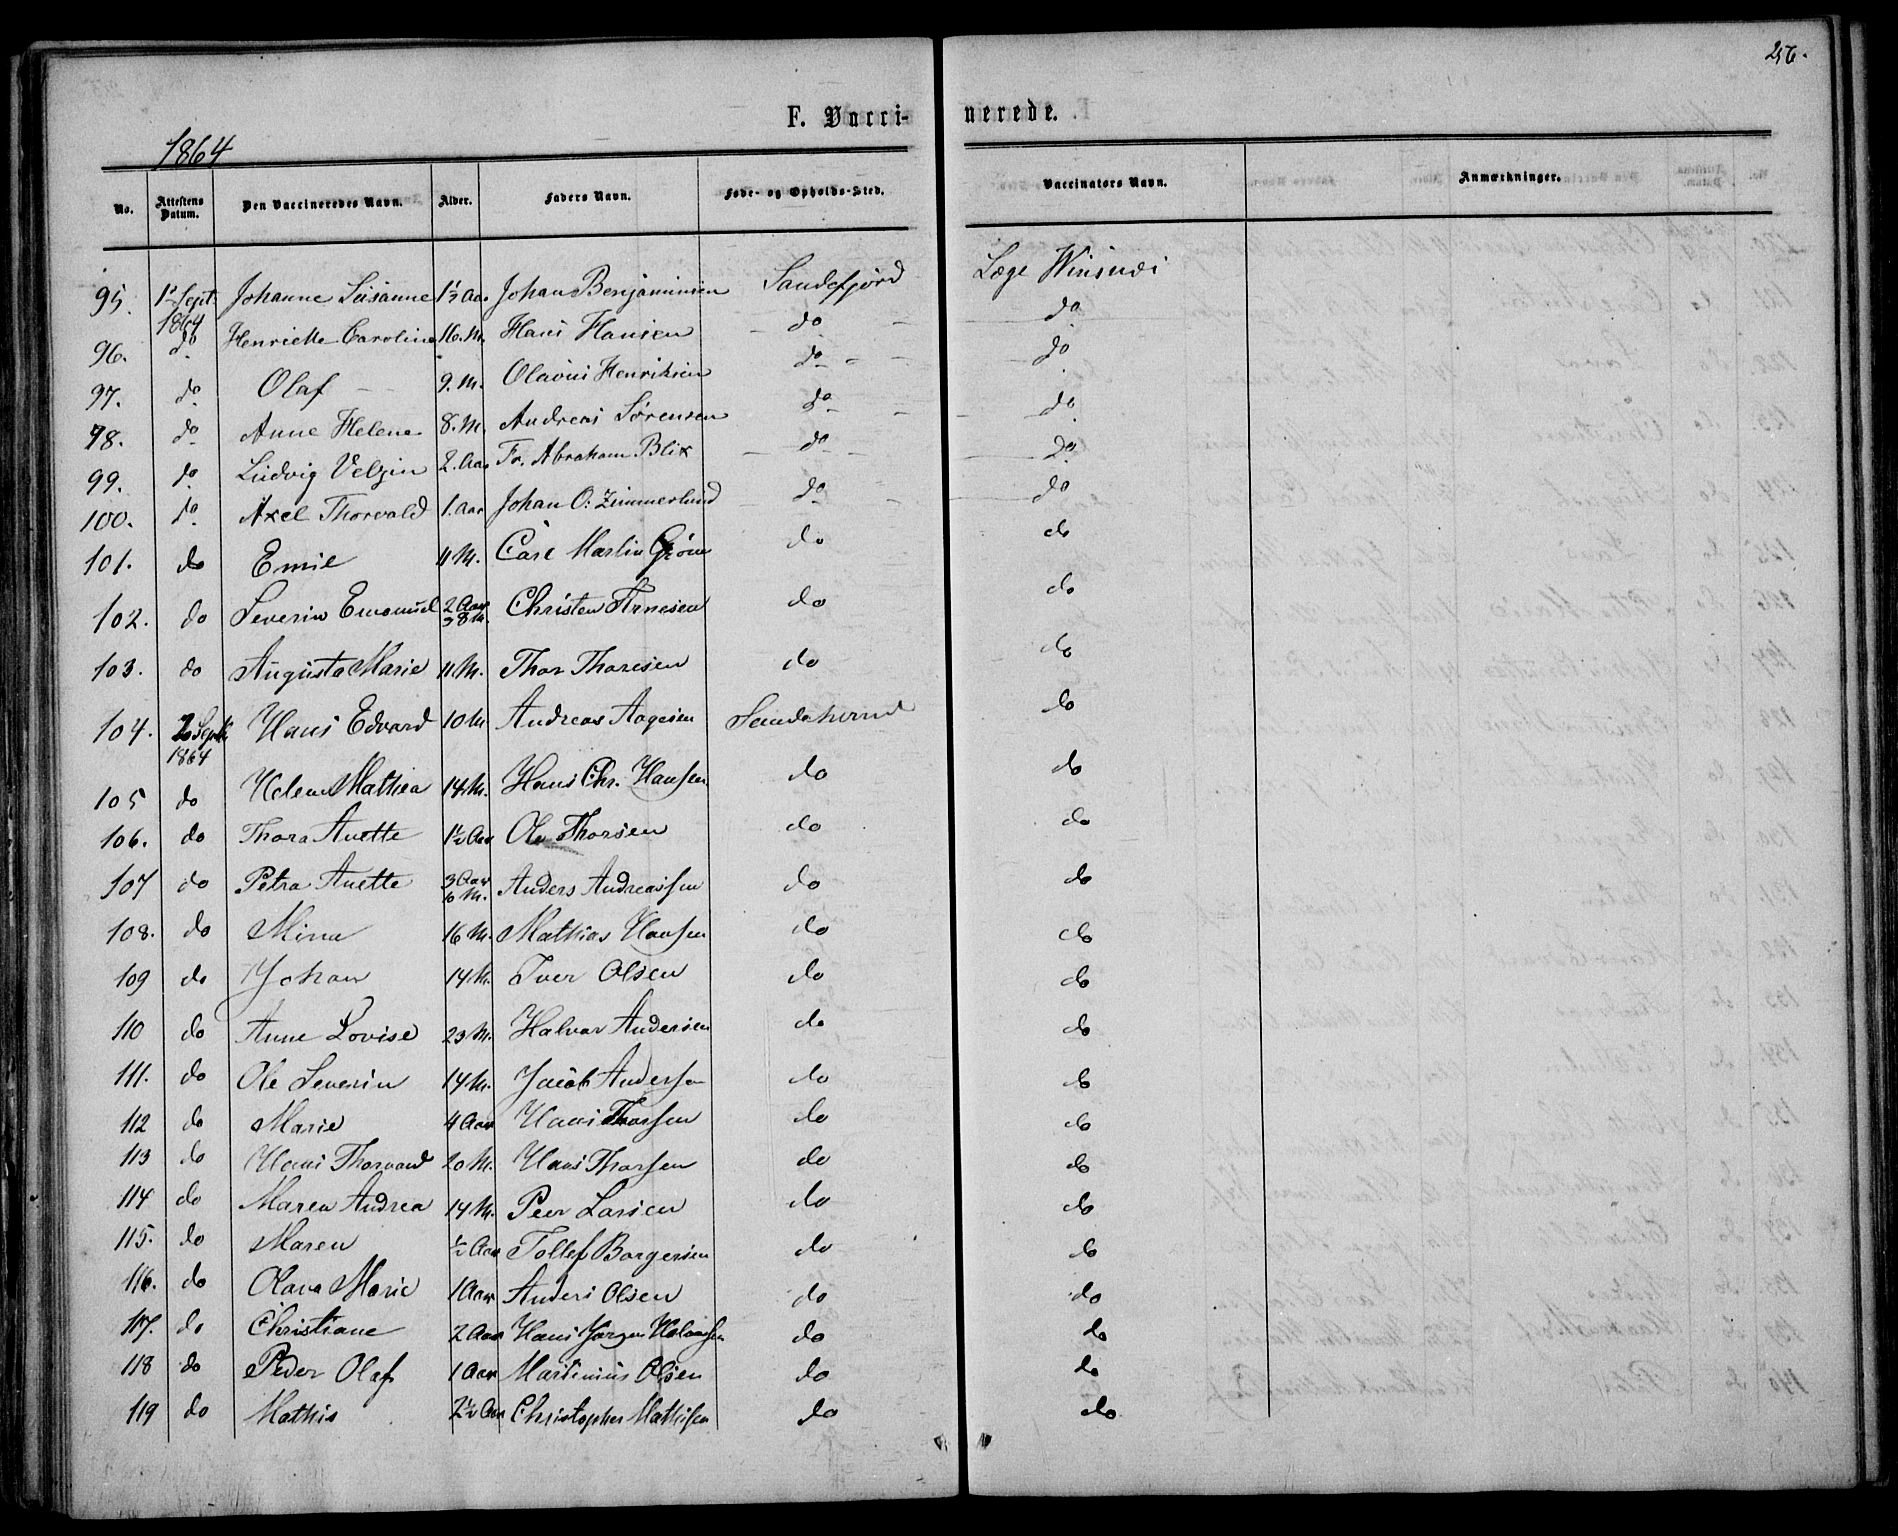 256.
F. Vacci-nerede.
1864
No. Attestens Datum. Den Vaccineredes Navn. Alder. Faders Navn. Føde- og Opholds-Sted. Vaccinators Navn. Anmærkninger.
95. 1 Sept. 1864 Johanne Susanne 1½ Aar Johan Benjaminsen Sandefjord Læge Winsnes
96. do Henriette Caroline 16. M. Hans Hansen do do
97. do Olaf 9. M. Olavus Henriksen do do
98. do Anne Helene 8. M. Andreas Sørensen do do
99. do Ludvig 2. Aar Fr. Abraham Blix do do
100. do Axel Thorvald 1. Aar Johan O. Zimmerlund do do
101. do Emil 11 M. Carl Martin Grøm do do
102. do Severin Emanuel 2 Aar 8 M. Christen Arnesen do do
103. do Augusta Marie 11 M. Thor Thoresen do do
104. 2 Sept. 1864 Hans Edvard 10 M Andreas Aagesen Sandeherred do
105 do Helene Mathea 14 M. Hans Chr. Hansen do do
106. do Thora Anette 1½ Aar Ole Thorsen do do
107 do Petra Anette 3 Aar 6 M. Anders Andreassen do do
108. do Mina 16 M. Mathias Hansen do do
109 do Johan 14 M. Iver Olsen do do
110 do Anne Lovise 23 M. Halvor Andersen do do
111. do Ole Severin 14 M. Jacob Andersen do do
112 do Marie 4 Aar Hans Thorsen do do
113 do Hans Thorvand 20 M. Hans Thorsen do do
114 do Maren Andrea 14 M. Peer Larsen do do
115. do Maren ½ Aar Tollef Borgersen do do
116. do Olava Marie 1 Aar Anders Olsen do do
117. do Christiane 2 Aar Hans Jørgen do do
118 do Peder Olaf 1 Aar Martinius Olsen do do
119 do Mathis 2½ Aar Christopher Mathisen do do